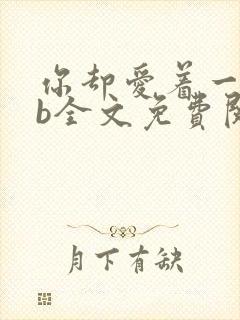 你却爱着一
b全文免費閱
月下有缺